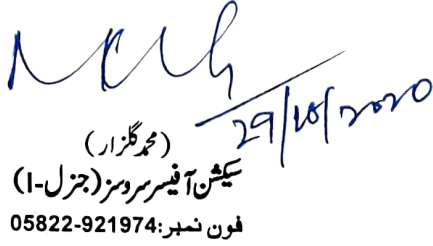 29/10/2020
(محمد گلزار)
سیکشن آفیسر سروسز (جنرل-I)
فون نمبر:05822-921974